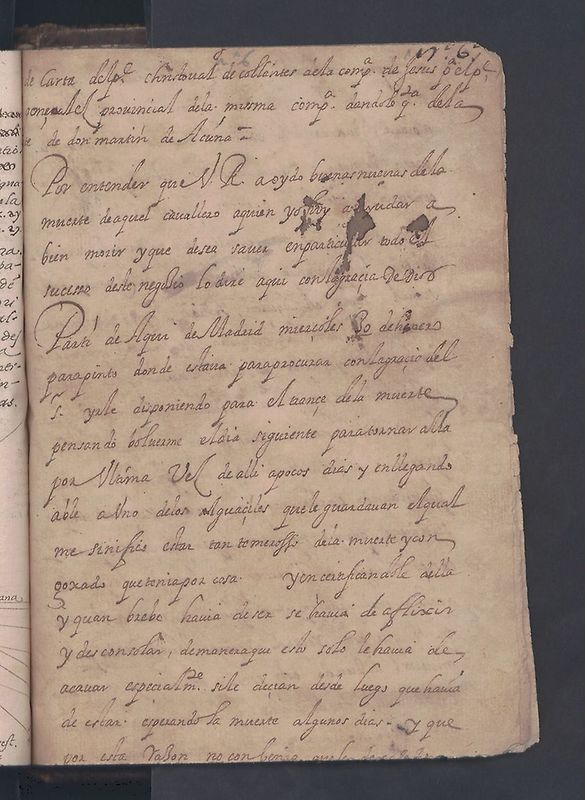 de Carta del pe. christoual de collantes de la compa. de Jesus pa. el pe.
provincial de la misma compa. dandole qta. de la
de don martin de Acuña =
Por entender que V. R. a oydo buenas nueuas de la
muerte de aquel cauallero a quien yo fuy a ayudar a
bien morir y que desea sauer en particular todo el
sucesso deste negocio lo dire aqui con la gracia de Dios
Parti de Aqui de Madrid miercoles 30 de henero
para pinto donde estaua para procurar con la gracia del
s. yrle disponiendo para el trançe de la muerte
pensando boluerme el dia siguiente para tornar alla
por Vltima Vez de alli a pocos dias y en llegando
able a Vno de los Alguaciles que le guardauan el qual
me sinifico estar tan temeroso de la muerte y con
goxado que tenia por cosa yencertificandole della
y quan brebe hauia de ser se hauia de aflixir
y desconsolar, de manera que esto solo le hauia de
acauar especialmte. si le decian desde luego que hauia
de estar esperando la muerte algunos dias - y que
por esta Razon no conbenia